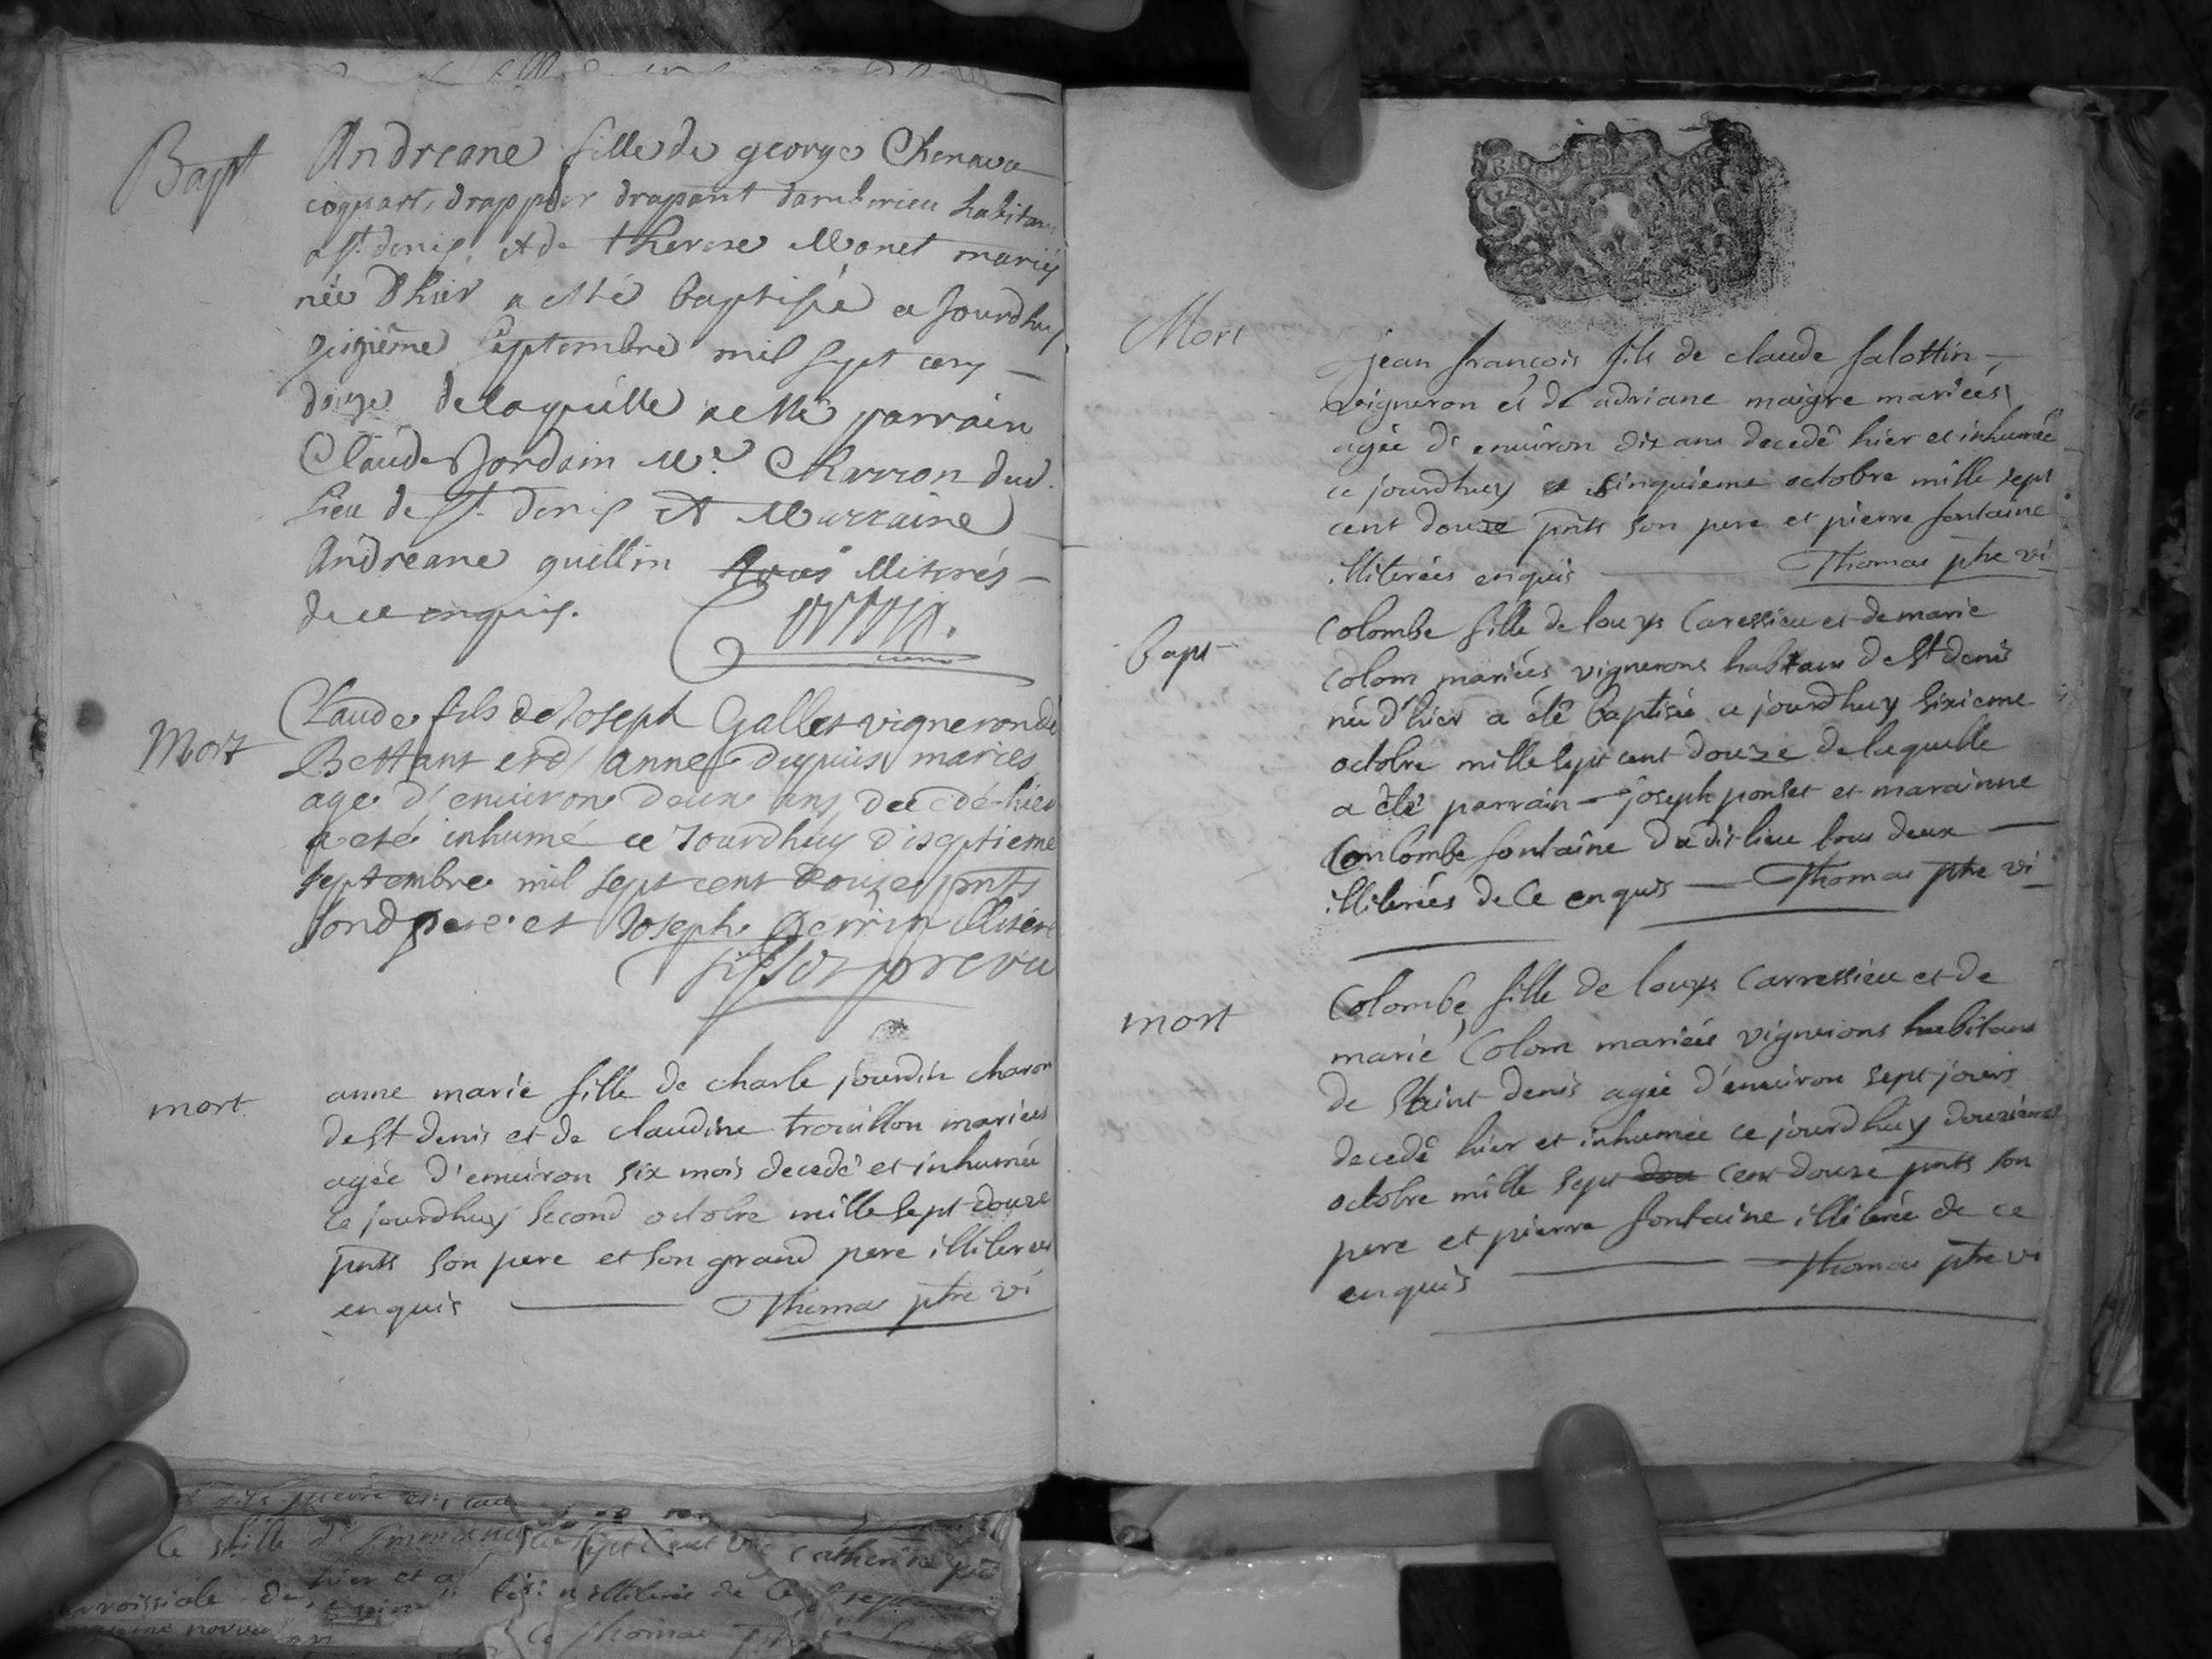 Bapt
Andreane fille de george Chenava
coquart, drappier drapant damberieu habitans
a st. denis, et de therese Monet mariés
née d'hier a esté baptisée ce jourdhuy
seiziême septembre mil sept cens
douze de laquelle a esté parrain
Claude Jordain Me. Charron dud.
lieu de st. denis et Marraine
Andreane guillin illiterés
de ce enquis.
Mort
Claude fils de Joseph Gallet vigneron de
Bettant et d'anne dupuis maries
age d'environ deux ans decedé hier
a eté inhumé ce Jourdhuy diseptieme
septembre mil sept cent douze pnts
sond pere et Joseph Perrin illiteré
mort
anne marie fille de charle jourdin charon
de st denis et de claudine trouillon mariées
agée d'environ six mois decedé et inhumée
ce jourdhuy second octobre mille sept douze
pnts son pere et son grand pere illiterés
enquis Thomas ptre vi
Mort
jean francois fils de claude falottin
vigneron et de adriane maigre mariées
agée d'environ dix ans decedé hier et inhumée
ce jourdhuy sinquieme octobre mille sept
cent douze pnts son pere et pierre fontaine
illiterées enquis Thomas ptre vi
bapt
Colombe fille de louys Caressieu et de marie
Colom mariées vignerons habitans de St denis
née d'hier a été baptisée ce jourdhuy sixieme
octobre mille sept cent douze de laquelle
a été parrain joseph ponset et marainne
Conlombe fontaine dudit lieu tous deux
illiterées de ce enquis Thomas ptre vi
mort
Colombe fille de louys Carressieu et de
marie Colom mariées vignerons habitans
de Saint denis agée d'environ sept jours
decedé hier et inhumée ce jourdhuy douzieme
octobre mille sept dou cent douze pnts son
pere et pierre fontaine illiterée de ce
enquis Thomas ptre vi